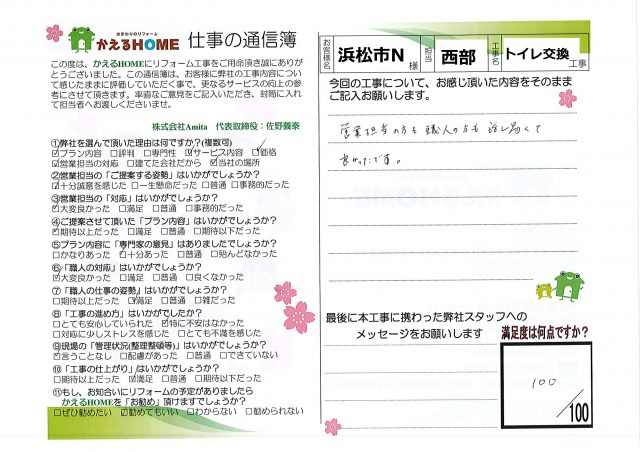 水まわりのリフォーム
かえるHOME
仕事の通信簿
この度は、かえるHOMEにリフォーム工事をご用命頂き誠にありが
とうございました。この通信簿は、お客様に弊社の工事内容につい
て感じたままに評価していただく事で、更なるサービスの向上の参
考にさせて頂きます。率直なご意見をご記入いただき、封筒に入れ
て担当者へお渡しくださいませ。
株式会社Amita 代表取締役：佐野義泰
①弊社を選んで頂いた理由は何ですか?(複数可)
☑プラン内容 □評判 □専門性 ☑サービス内容 ☑価格
☑営業担当の対応 □建てた会社だから ☑当社の場所
②営業担当の「ご提案する姿勢」はいかがでしょうか？
☑十分誠意を感じた □一生懸命だった □普通 □事務的だった
③営業担当の「対応」はいかがでしょうか？
☑大変良かった □満足 □普通 □事務的だった
④ご提案させて頂いた「プラン内容」はいかがでしょうか？
☑期待以上だった □満足 □普通 □期待以下だった
⑤プラン内容に「専門家の意見」はありましたでしょうか？
□かなりあった ☑十分あった □普通 □殆んどなかった
⑥「職人の対応」はいかがでしょうか？
☑大変良かった □満足 □普通 □良くなかった
⑦「職人の仕事の姿勢」はいかがでしょうか？
□期待以上だった ☑満足 □普通 □雑だった
⑧「工事の進め方」はいかがでしたか？
□とても安心していられた ☑特に不安はなかった
□対応に少しストレスを感じた □とても不満を感じた
⑨現場の「管理状況(整理整頓等)」はいかがでしょうか？
☑言うことなし □配慮があった □普通 □できていない
⑩「工事の仕上がり」はいかがでしょうか？
□期待以上だった ☑満足 □普通 □期待以下だった
⑪もし、お知合いにリフォームの予定がありましたら
かえるHOMEを「お勧め」頂けますでしょうか？
□ぜひ勧めたい ☑勧めてもいい □わからない □勧められない
お客様名 浜松市N 様 担当 西部 工事名 トイレ交換 工事
今回の工事について、お感じ頂いた内容をそのまま
ご記入お願いします。
営業担当の方も職人の方も話し易くて
良かったです。
最後に本工事に携わった弊社スタッフへの
メッセージをお願いします
満足度は何点ですか？
100
/100